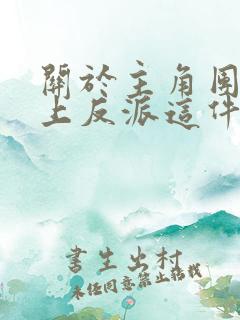 關於主角團
上反派這件
書生出村
未經同意禁止搭載